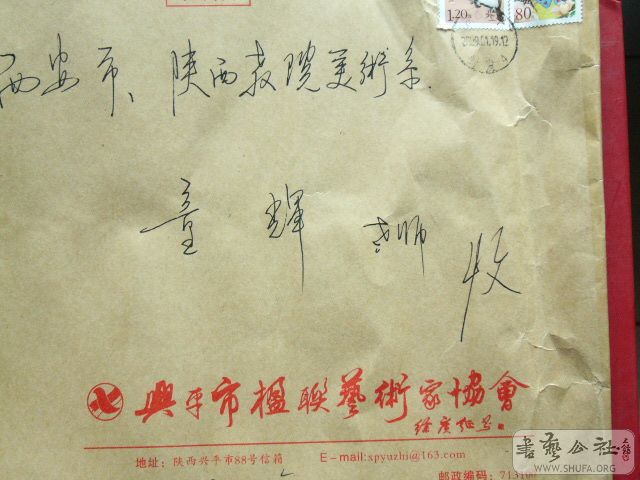 1.20元
80
2009.01.19.12
西安市、陕西教院美術系.
童輝老师收
興平市楹聯藝術家協會
地址：陕西兴平市88号信箱 E-mail:spyuzhi@163.com
邮政编码：7131
書藝公社
WWW.SHUFA.ORG